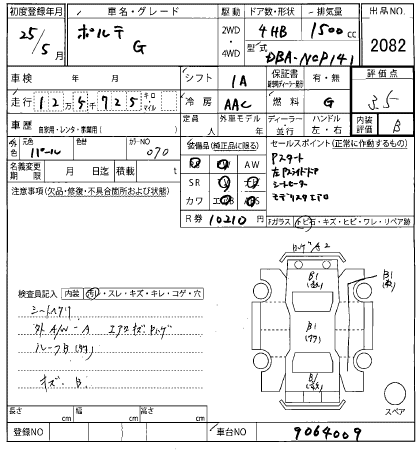 初度登録年月 車名・グレード 駆動 ドア数・形状 排気量 出品NO.
25/5月 ポルテ G 2WD・4WD 4HB 1500cc 2082
型式 DBA-NCP141
車検 年 月 シフト IA 保証書 有・無 評価点
走行 12万5千725 キロ・マイル 冷房 AAC 燃料 G 3.5
車歴 自家用・レンタ・事業用( ) 定員 人 外車モデル 年 ディーラー・並行 ハンドル 左・右 内装評価 B
外色 元色 パール 色替 カラーNO 070
装備品(純正品に限る) セールスポイント(正常に作動するもの)
名義変更期限 月 日迄 積載 t
AW
SR
カワ
Pスタート
左Pスライドドア
シートヒーター
モデリスタエアロ
注意事項(欠品・修復・不具合箇所および状態)
R券 10210円
Fガラス・トビ石・キズ・ヒビ・ワレ・リペア跡
検査員記入 内装 汚レ・スレ・キズ・キレ・コゲ・穴
外 A/W-A エアロキズ
ルーフB
キズ B
B1
B1
B1
B1
スペア
長さ cm 幅 cm 高さ cm
登録NO 車台NO 9064009